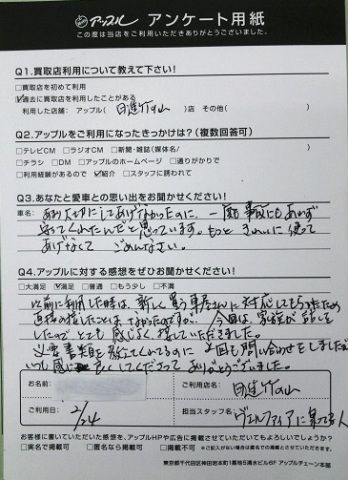 アップル アンケート用紙
この度は当店をご利用いただきありがとうございました。
Q1.買取店利用について教えて下さい!
□買取店を初めて利用
☑過去に買取店を利用したことがある
利用した店舗: アップル( 日進竹の山 )店 その他( )
Q2.アップルをご利用になったきっかけは?(複数回答可)
□テレビCM □ラジオCM □新聞・雑誌(媒体名/ )
□チラシ □DM □アップルのホームページ □通りがかりで
□利用経験があるので ☑紹介 □スタッフに誘われて
Q3.あなたと愛車との思い出をお聞かせください!
車名:
あまり大切にしてあげなかったのに、一度も事故にもあわず
走ってくれたんだと思っています。もっときれいに使って
あげなくて ごめんなさい。
Q4.アップルに対する感想をぜひお聞かせください!
□大満足 ☑満足 □普通 □もう少し □不満
以前に利用した時は、新しく買う車屋さんに対応してもらったため
直接お話したことは なかったのですが、今回は、家族が話を
したので、とても感じよく 接していただきました。
必要書類を教えてくれるのに 2回も問い合わせをしましたが
いつも感じ良くしてくださって ありがとうございました。
お名前:
ご利用店名:
日進竹の山
ご利用日:
2/24
担当スタッフ名:
お客様に書いていただいた感想を、アップルHPや広告に掲載させていただいてもよろしいでしょうか?
□実名で掲載可 □匿名なら掲載可 □不可
東京都千代田区神田岩本町1番地5清水ビル6F アップルチェーン本部